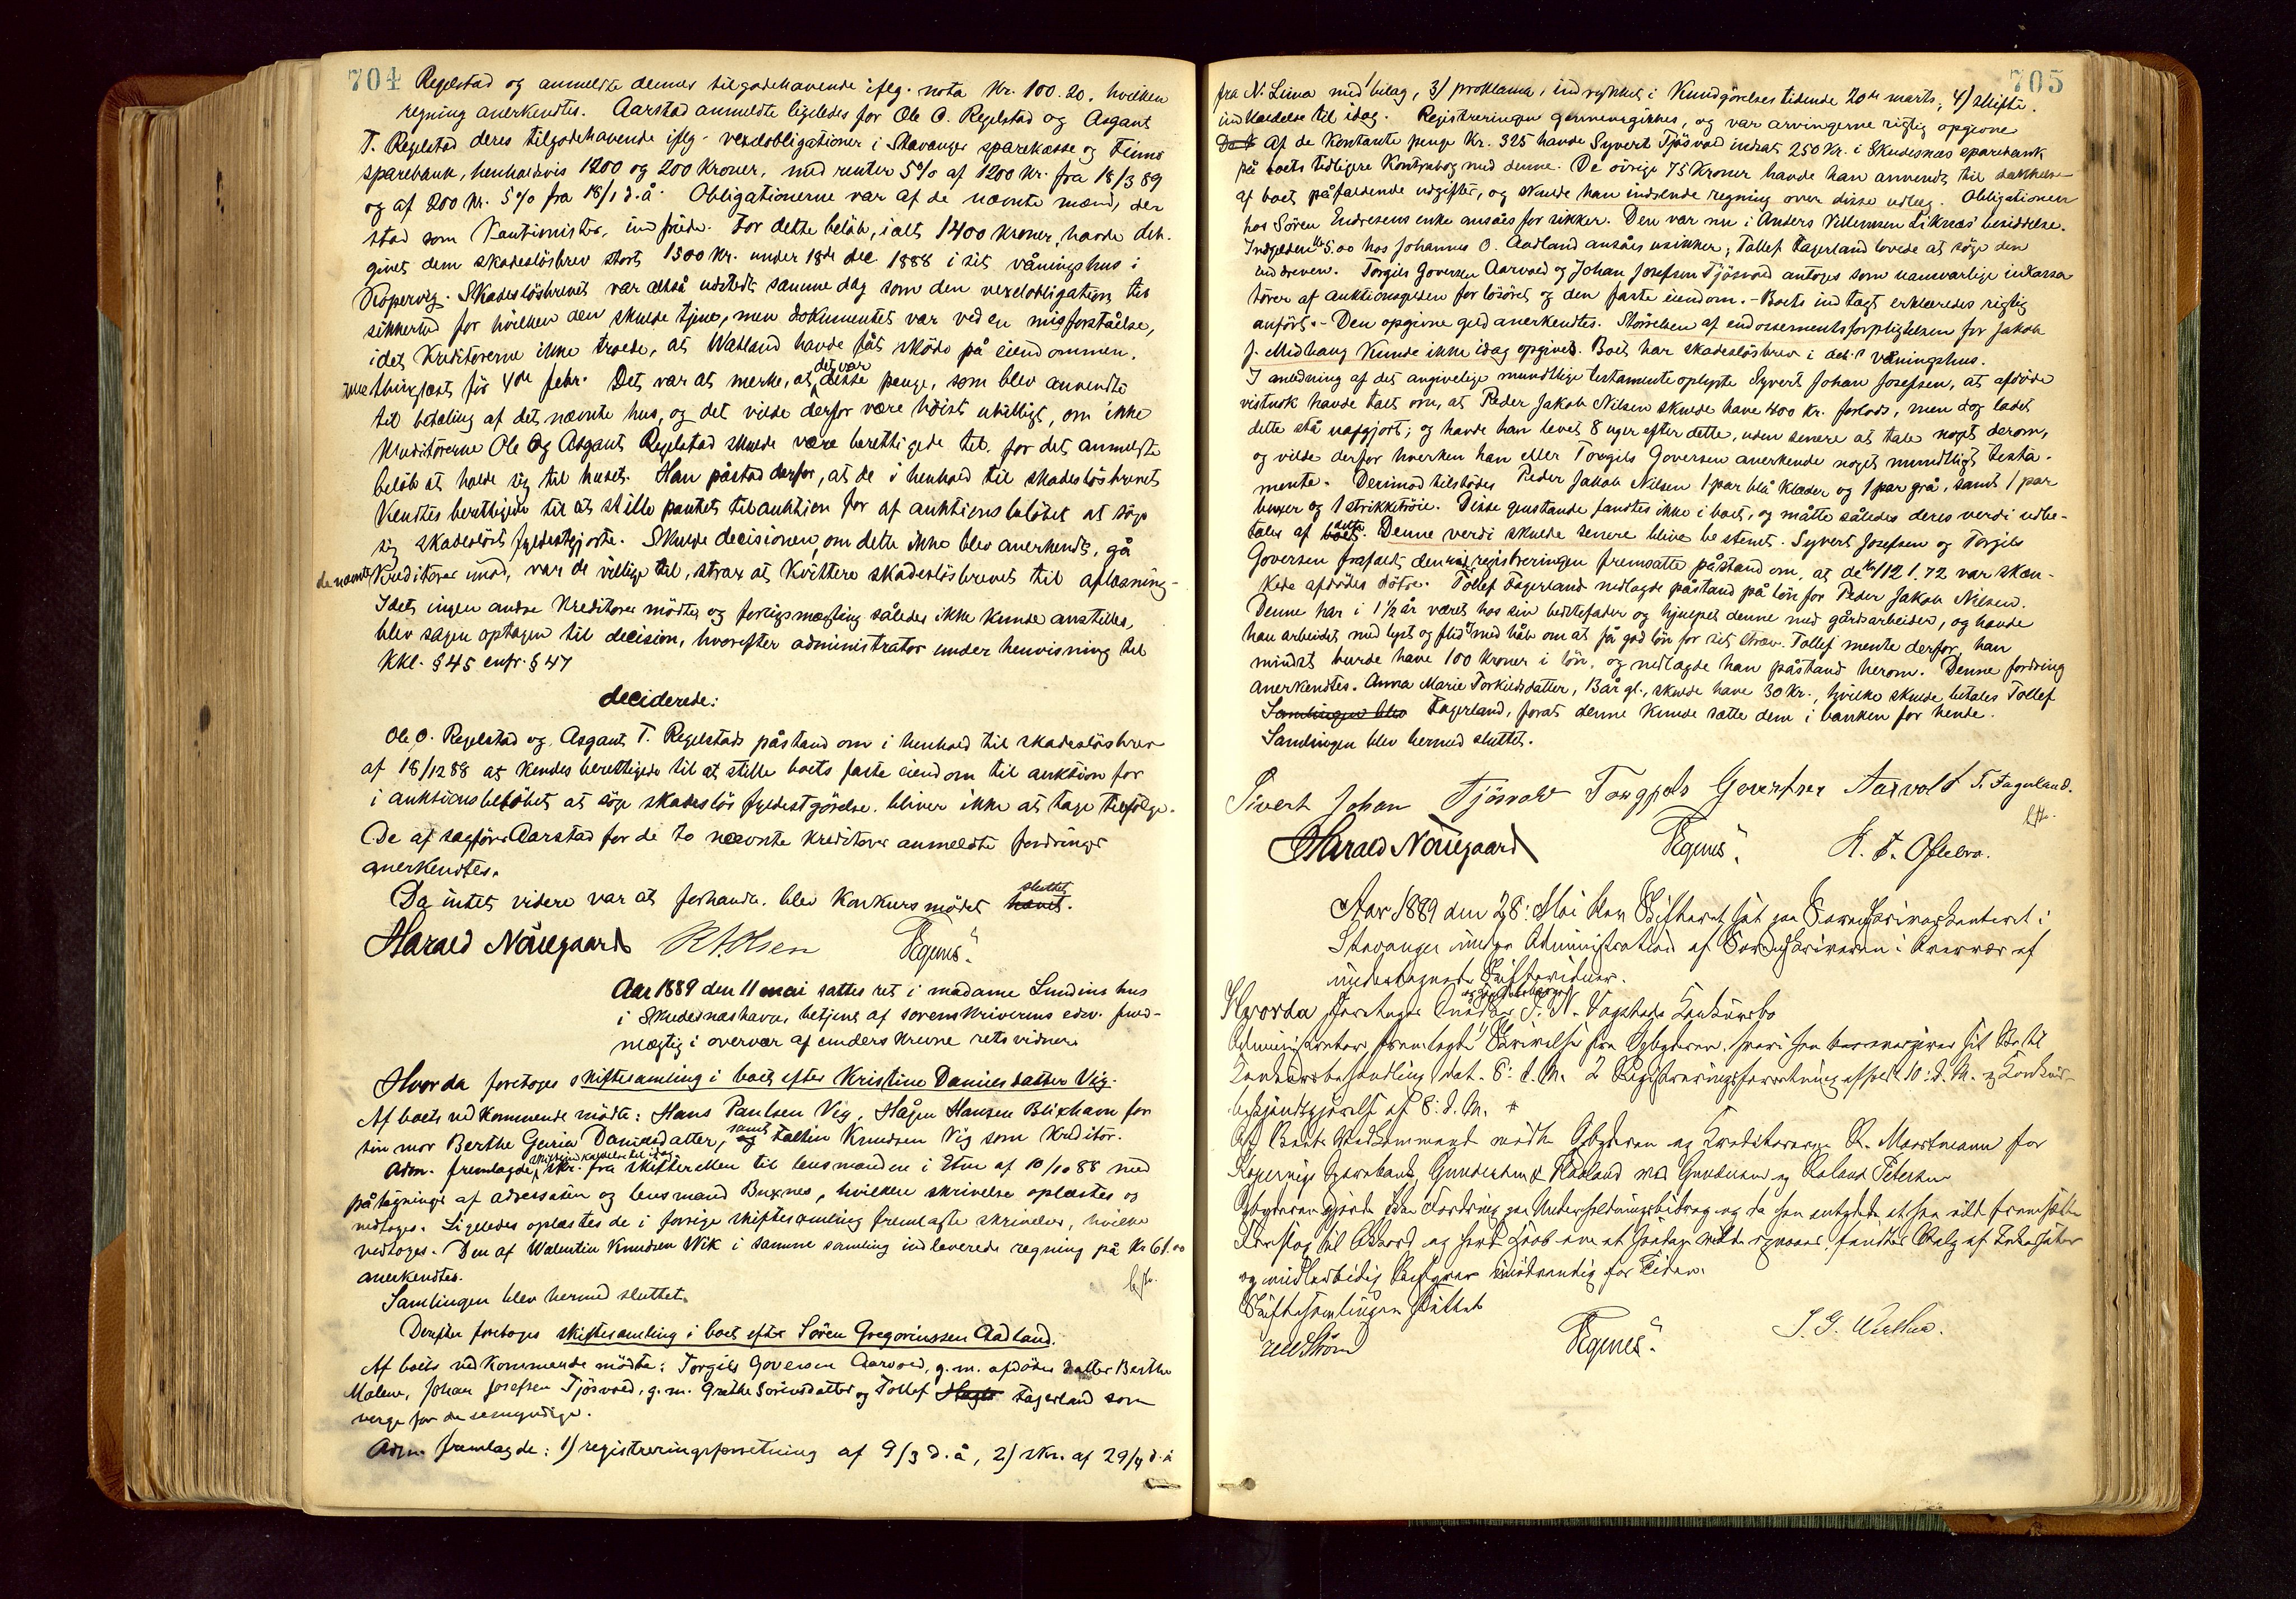 704
Regelstad og anmeldte dennes tilgodehavende iflg. nota Kr. 100.20, hvilken
regning anerkendtes. Aarstad anmeldte ligeledes for Ole O. Regelstad og Asgaut
T. Regelstad deres tilgodehavende iflg. vexelobligationer i Stavanger sparekasse og Times
sparebank, henholdsvis 1200 og 200 Kroner, med renter 5% af 1200 Kr. fra 18/3 89
og af 200 Kr. 5% fra 18/1 d.å. Obligationerne var af de nævnte mænd, der
stod som Kautionister, indfriede. For dette beløb, ialt 1400 Kroner, havde deb.
givet dem skadesløsbrev stort 1500 Kr. under 18de dec 1888 i sit våningshus i
Kopervig. Skadesløsbrevet var altså udstedt samme dag som den vexelobligation, til
sikkerhed for hvilken den skulde tjene, men dokumentet var ved en misforståelse,
idet Kreditorerne ikke troede, at Watland havde fåt skøde på eiendommen,
ikke thinglæst før 4de febr. Det var at merke, at det var disse penge, som blev anvendte
til betaling af det nævnte hus, og det vilde derfor være høist ubilligt, om ikke
Kreditorerne Ole og Asgaut Regelstad skulde være berettigede til for det anmeldte
beløb at holde sig til huset. Han påstod derfor, at de i henhold til skadesløsbrevet
Kendtes berettigede til at stille pantet til auktion for af auktionsbeløbet at søge
sig skadesløst fyldestgjorte. Skulde decisionen, om dette ikke blev anerkendt, gå
de nævnte Kreditorer imod, var de villige til, strax at Kvittere skadesløsbrevet til aflæsning.
Idet ingen andre Kreditorer mødte og forligsmægling således ikke kunde anstilles,
blev sagen optagen til decision, hvorefter administrator under henvisning til
KKl. § 45 cnfr. § 47
deciderede:
Ole O. Regelstad og Asgaut T. Regelstads påstand om i henhold til skadesløsbrev
af 18/12 88 at Kendes berettigede til at stille boets faste eiendom til auktion for
i auktionsbeløbet at søge skadesløs fyldestgørelse, bliver ikke at tage tilfølge.
De af sagfører Aarstad for de to nævnte Kreditorer anmeldte fordringer
anerkendtes.
Da intet videre var at forhandle, blev Konkursmødet hævet. sluttet
Harald Nörregaard R. Olsen Egenes
Aar 1889 den 11 mai sattes ret i madame Lundins hus
i Skudesnæshavn, betjent af sorenskriverens edsv. fuld-
mægtig i overvær af underskrevne retsvidner.
Hvorda foretoges skiftesamling i boet efter Kristine Danielsdatter Vig.
Af boets vedkommende mødte: Hans Paulsen Vig, Hågen Hansen Blikshavn for
sin mor Berthe Guria Danielsdatter, og samt Falten Knudsen Vig som Kreditor.
Adm. fremlagde, skifteindkaldelse til idag, skr. fra skifteretten til lensmanden i Etne af 10/10 88 med
påtegninge af adressaten og lensmand Buxnes, hvilken skrivelse oplæstes og
vedtoges. Ligeledes oplæstes de i forrige skiftesamling fremlagte skrivelser, hvilke
vedtoges. Den af Walentin Knudsen Wik i samme samling indleverede regning på Kr 61.00
anerkendtes.
Samlingen blev hermed sluttet.
Derefter foretoges skiftesamling i boet efter Søren Gregoriussen Aadland.
Af boets vedkommende mødte: Torgils Goversen Aarvold, g.m. afdødes datter Berthe
Malene, Johan Josefsen Tjøsvold, g.m. Grethe Sørensdatter og Tollef Fagerland som
verge for de umyndige.
Adm. fremlagde: 1) registreringsforretning af 9/3 d.å, 2) skr. af 29/4 d.å
705
fra N. Lima med 1 bilag, 3) proklama, indrykket i Kundgörelsestidende 20de marts, 4) skifte-
indkaldelse til idag. Registreringen gennemgikkes, og var arvingerne rigtig opgivne.
Af de Kontante penge Kr. 325 havde Syvert Tjøsvold indsat 250 Kr. i Skudesnæs sparebank
på boets tidligere Kontrabog med denne. De øvrige 75 Kroner havde han anvendt til dækkelse
af boet påfaldende udgifter, og skulde han indsende regning over disse udlæg. Obligationen
hos Søren Endresens enke ansåes for sikker. Den var nu i Anders Villemsen Liknæs' besiddelse.
Indgælden Kr. 5.00 hos Johannes O. Aadland ansåes usikker; Tollef Fagerland lovede at søge den
inddreven. Torgils Goversen Aarvold og Johan Josefsen Tjøsvold antoges som uansvarlige inkassa-
törer af auktionsgælden for løsøret og den faste eiendom. - Boets indtægt erklæredes rigtig
anført. - Den opgivne gjeld anerkendtes. Størrelsen af endossementsforpligtelsen for Jakob
J. Midhaug Kunde ikke idag opgives. Boet har skadesløsbrev i deb.s våningshus.
I anledning af det angivelige mundtlige testamente oplyste Syvert Johan Josefsen, at afdøde
vistnok havde talt om, at Peder Jakob Nilsen skulde have 400 Kr. forlods, men dog ladet
dette stå uafgjort; og havde han levet 8 uger efter dette, uden senere at tale noget derom,
og vilde derfor hverken han eller Torgils Goversen anerkende noget mundtligt testa-
mente. Derimod tilstodes Peder Jakob Nilsen 1 par blå Klæder og 1 par grå, samt 1 par
buxer og 1 strikketrøie. Disse genstande fandtes ikke i boet, og måtte således deres verdi udbe-
tales af boet. Denne verdi skulde senere blive bestemt. Syvert Josefsen og Torgils
Goversen frafaldt den ved registreringen fremsatte påstand om, at de Kr. 1121.72 var skæn-
kede afdødes døtre. Tollef Fagerland nedlagde påstand på løn for Peder Jakob Nilsen.
Denne har i 1½ år været hos sin bedstefader og hjulpet denne med gårdsarbeidet, og havde
han arbeidet med lyst og flid med håb om at få god løn for sit stræv. Tollef mente derfor, han
mindst burde have 100 Kroner i løn, og nedlagde han påstand herom. Denne fordring
anerkendtes. Anna Marie Torkildsdatter, 13 år gl., skulde have 30 Kr., hvilke skulde betales Tollef
Samlingen blev Fagerland, forat denne kunde sætte dem i banken for hende.
Samlingen blev hermed sluttet.
Sivert Johan Tjösvold Torgils Goversen Aarvold T. Fagerland.
Harald Nörregaard Egenes
Aar 1889 den 28: Mai blev Skifteret sat paa Sorenskriverkontoret i
Stavanger under Administration af Sorenskriveren i Overvær af
undertegnede Skiftevidner.
Hvorda foretoges Konkursbo
Administrator fremlagde 1 Skrivelse fra Opbyderen, hvori han overgiver sit Bo til
Konkursbehandling dat. 8: d.M. 2 Registreringsforretning afholdt 10: d.M. og Konkurs-
bekjendtgjørelse af 8: d.M.
Af Boets Vedkommende mødte Opbyderen og Kreditorerne R. Maartmann for
Kopervigs Sparebank, Gundersen & Hadland ved Gundersen og Roland Petersen
Opbyderen gjorde ikke Fordring paa Underholdningsbidrag og da han antydede at han vilde fremsætte
Forslag til Akkord og havde Haab om at saadan vilde opnaaes, fandtes Valg af
og midlertidig Bestyrer unødvendig for Tiden.
Skiftesamlingen sluttet
Egenes